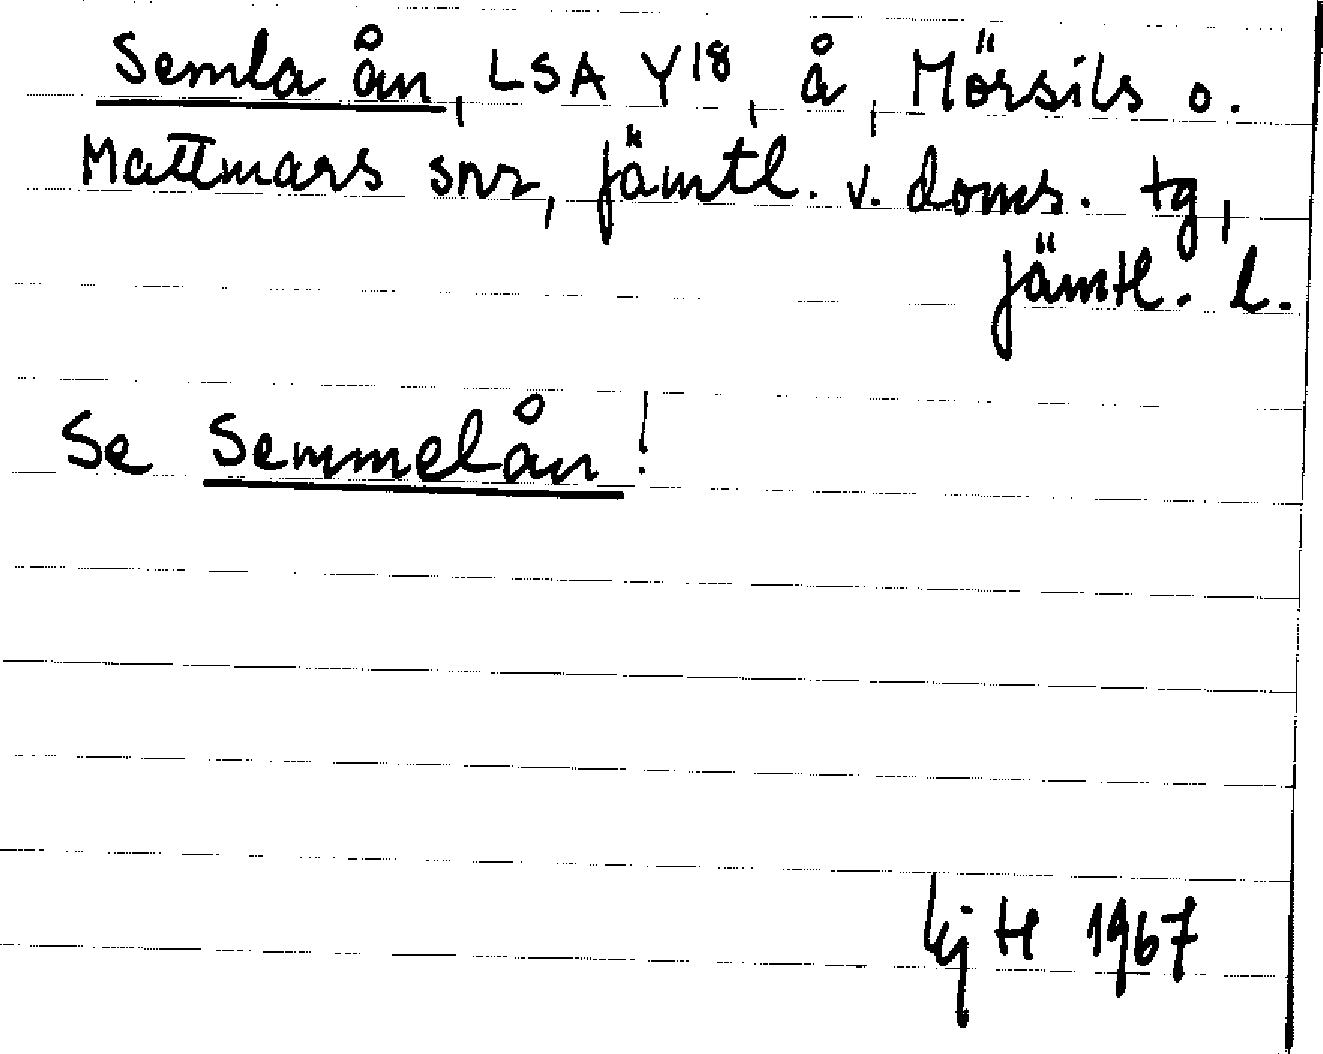 Semla ån, LSA Y18, å, Mörsils o.
Mattmars snr, Jämtl. v. doms. tg,
Jämtl. l.
Se Semmelån!
1967